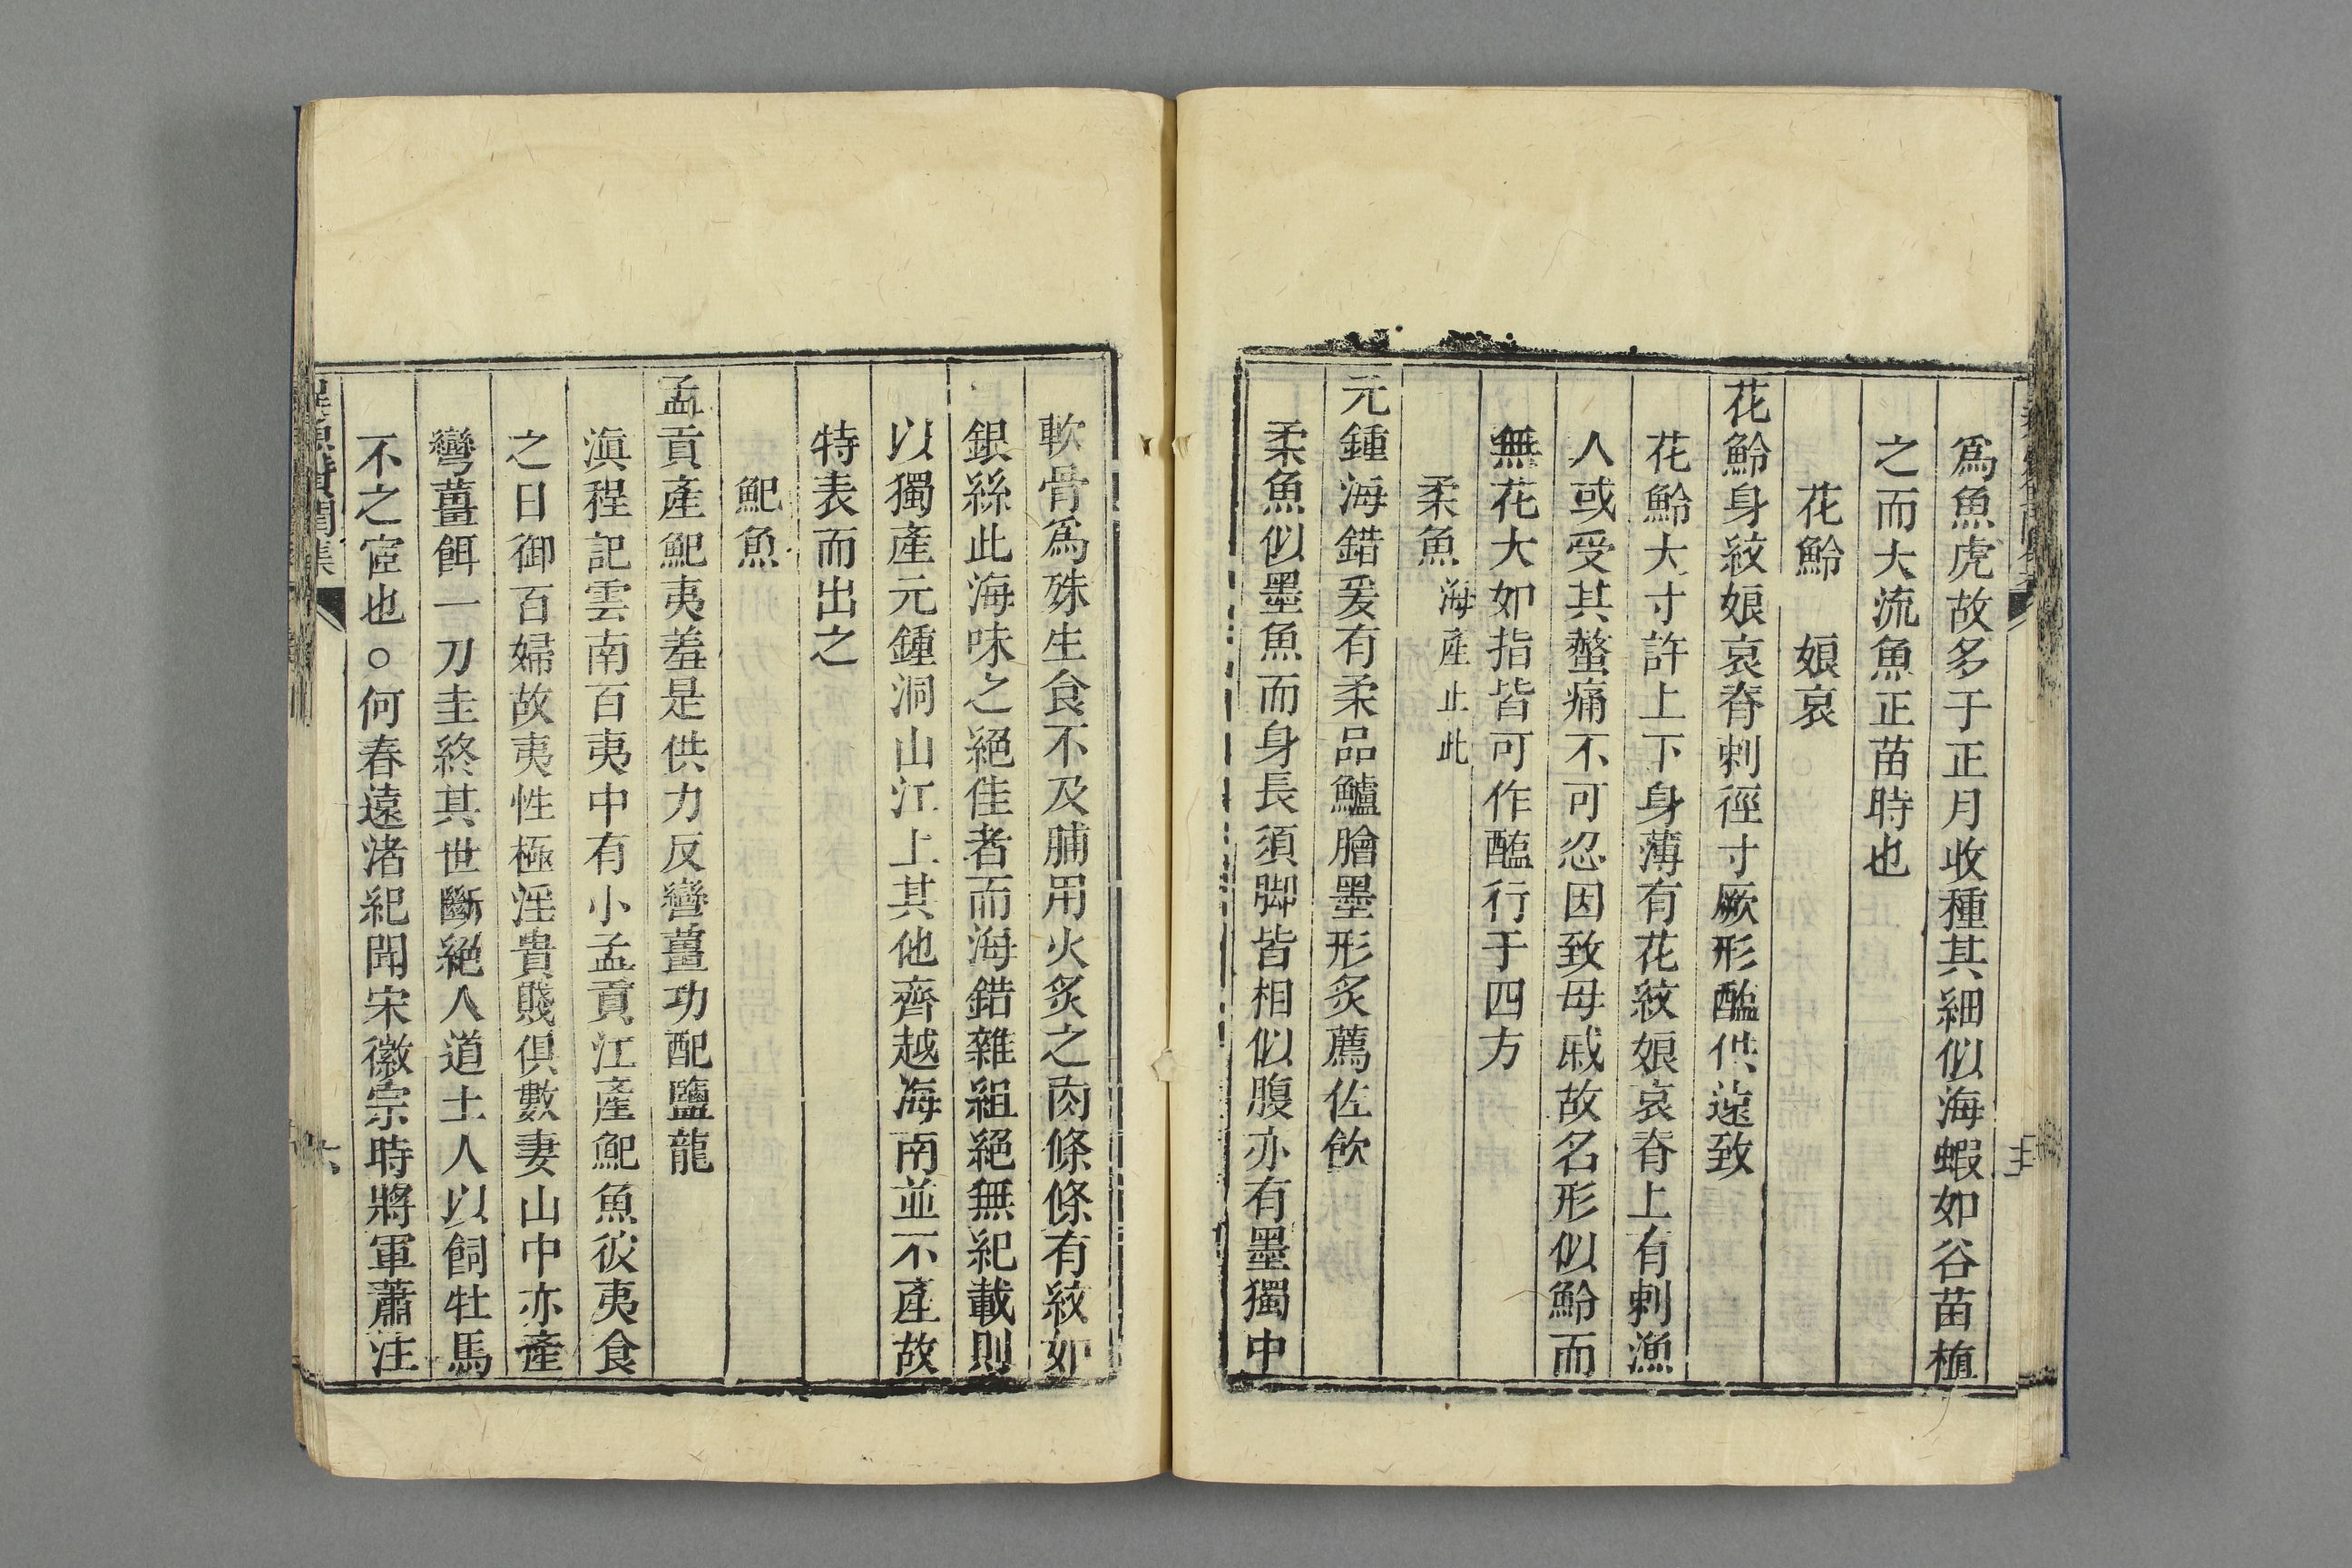 爲魚虎故多于正月收種其細似海蝦如谷苗植
之而大流魚正苗時也
花魿　娘哀
花魿身紋娘哀脊刺徑寸厥形醢供遠致
花魿大寸許上下身薄有花紋娘哀脊上有刺漁
人或受其螫痛不可忍因致母戚故名形似魿而
無花大如指皆可作醢行于四方
柔魚 海產止此
元鍾海錯爰有柔品鱸膾墨形炙薦佐飲
柔魚似墨魚而身長須脚皆相似腹亦有墨獨中
軟骨爲殊生食不及脯用火炙之肉條條有紋如
銀絲此海味之絕佳者而海錯雜組絕無紀載則
以獨產元鍾洞山江上其他齊越海南並不產故
特表而出之
䰿魚
孟貢產䰿夷羞是供力反彎薑功配鹽龍
滇程記雲南百夷中有小孟貢江產䰿魚彼夷食
之日御百婦故夷性極淫貴賤俱數妻山中亦產
彎薑餌一刀圭終其世斷絕人道土人以飼牡馬
不之宦也○何春遠渚紀聞宋徽宗時將軍蕭注
魚贊閏集
六